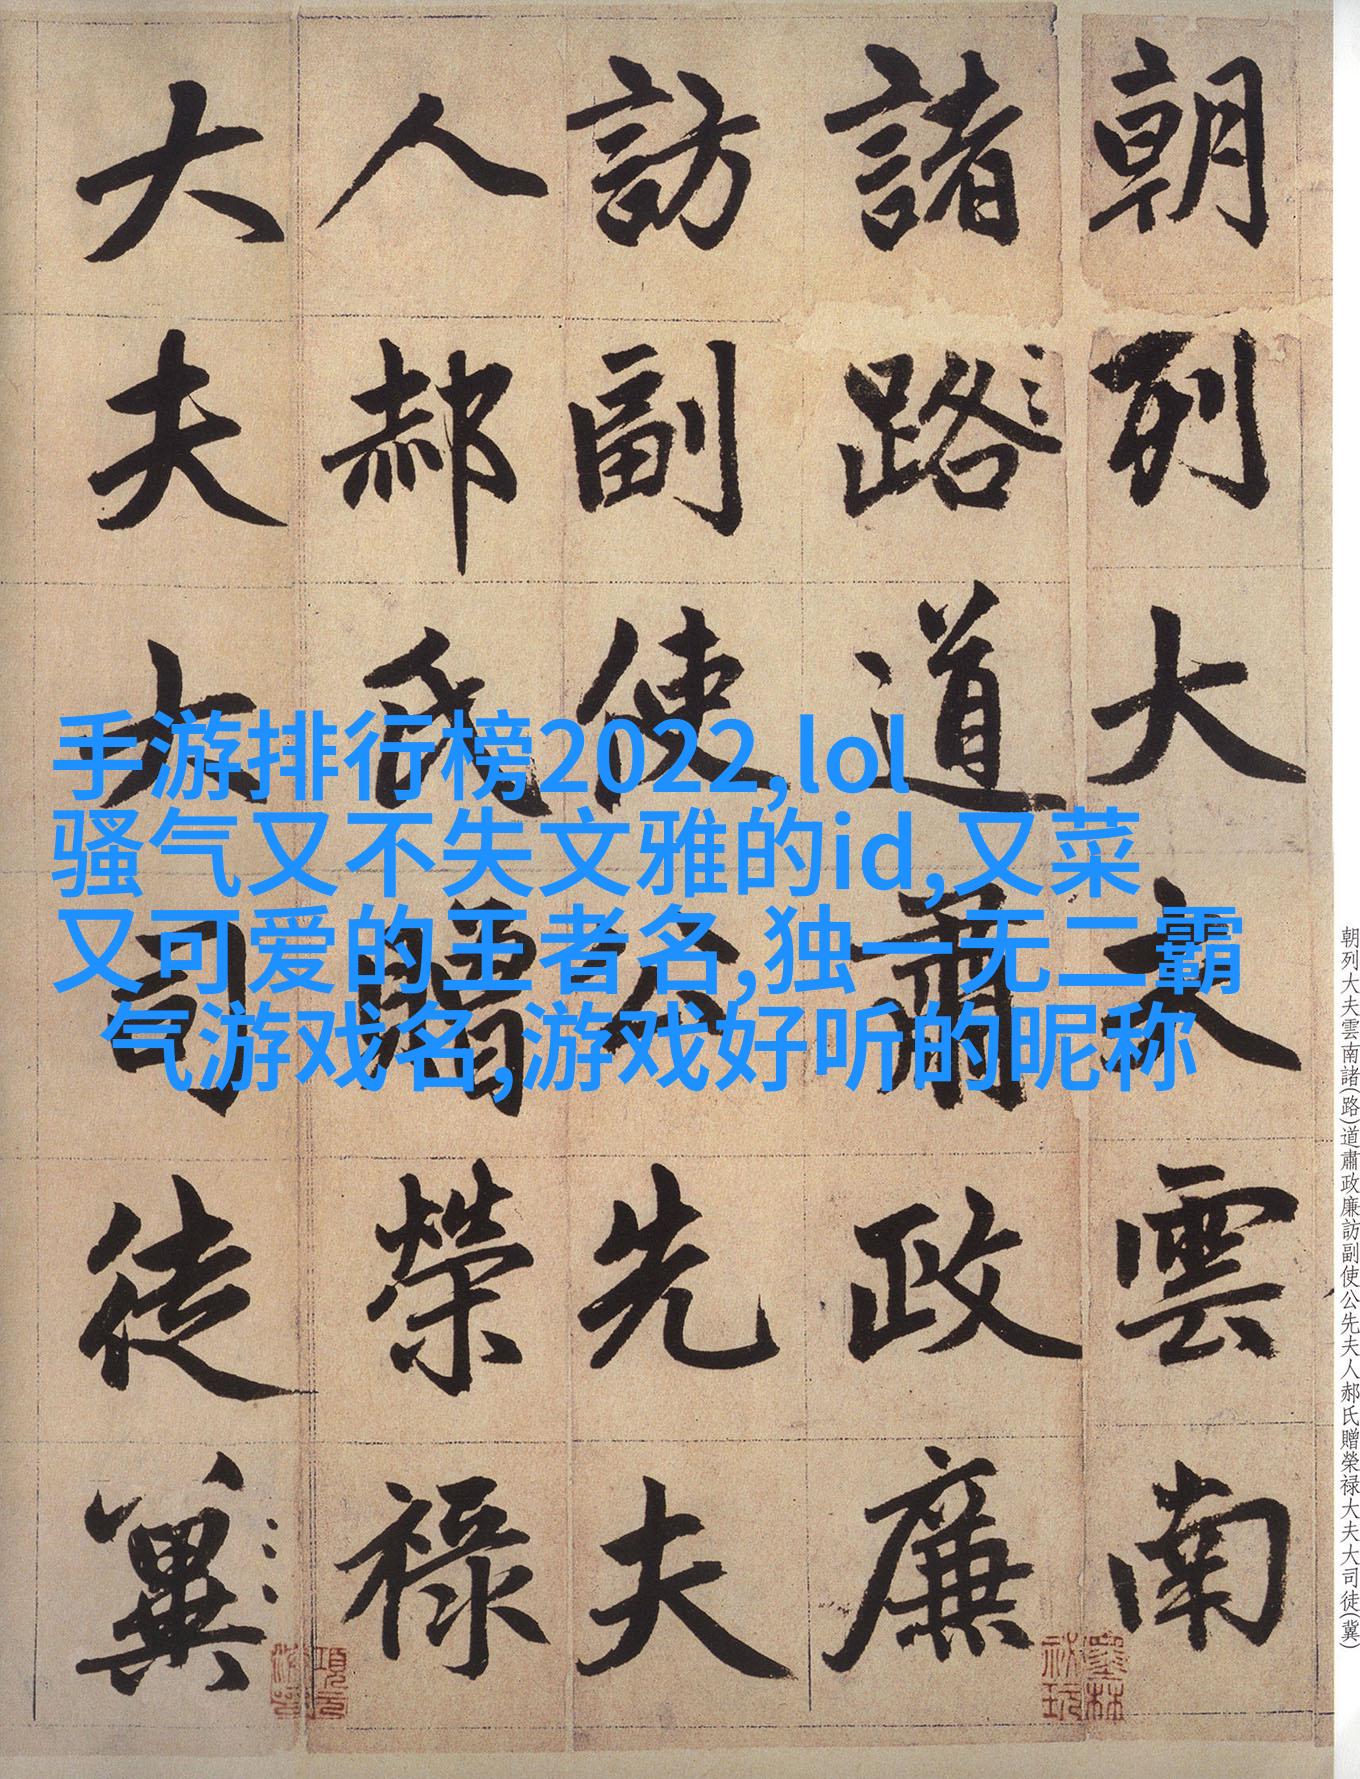 朝列大夫雲南
諸路道肅政廉
訪副使公先夫
人郝氏贈榮禄
大夫大司徒冀
手游排行榜2022,lol
骚气又不失文雅的id,又菜
又可爱的王者名,独一无二霸
气游戏名,游戏好听的昵称
朝列大夫雲南諸(路)道肅政廉訪副使公先夫人郝氏贈榮禄大夫大司徒(冀)